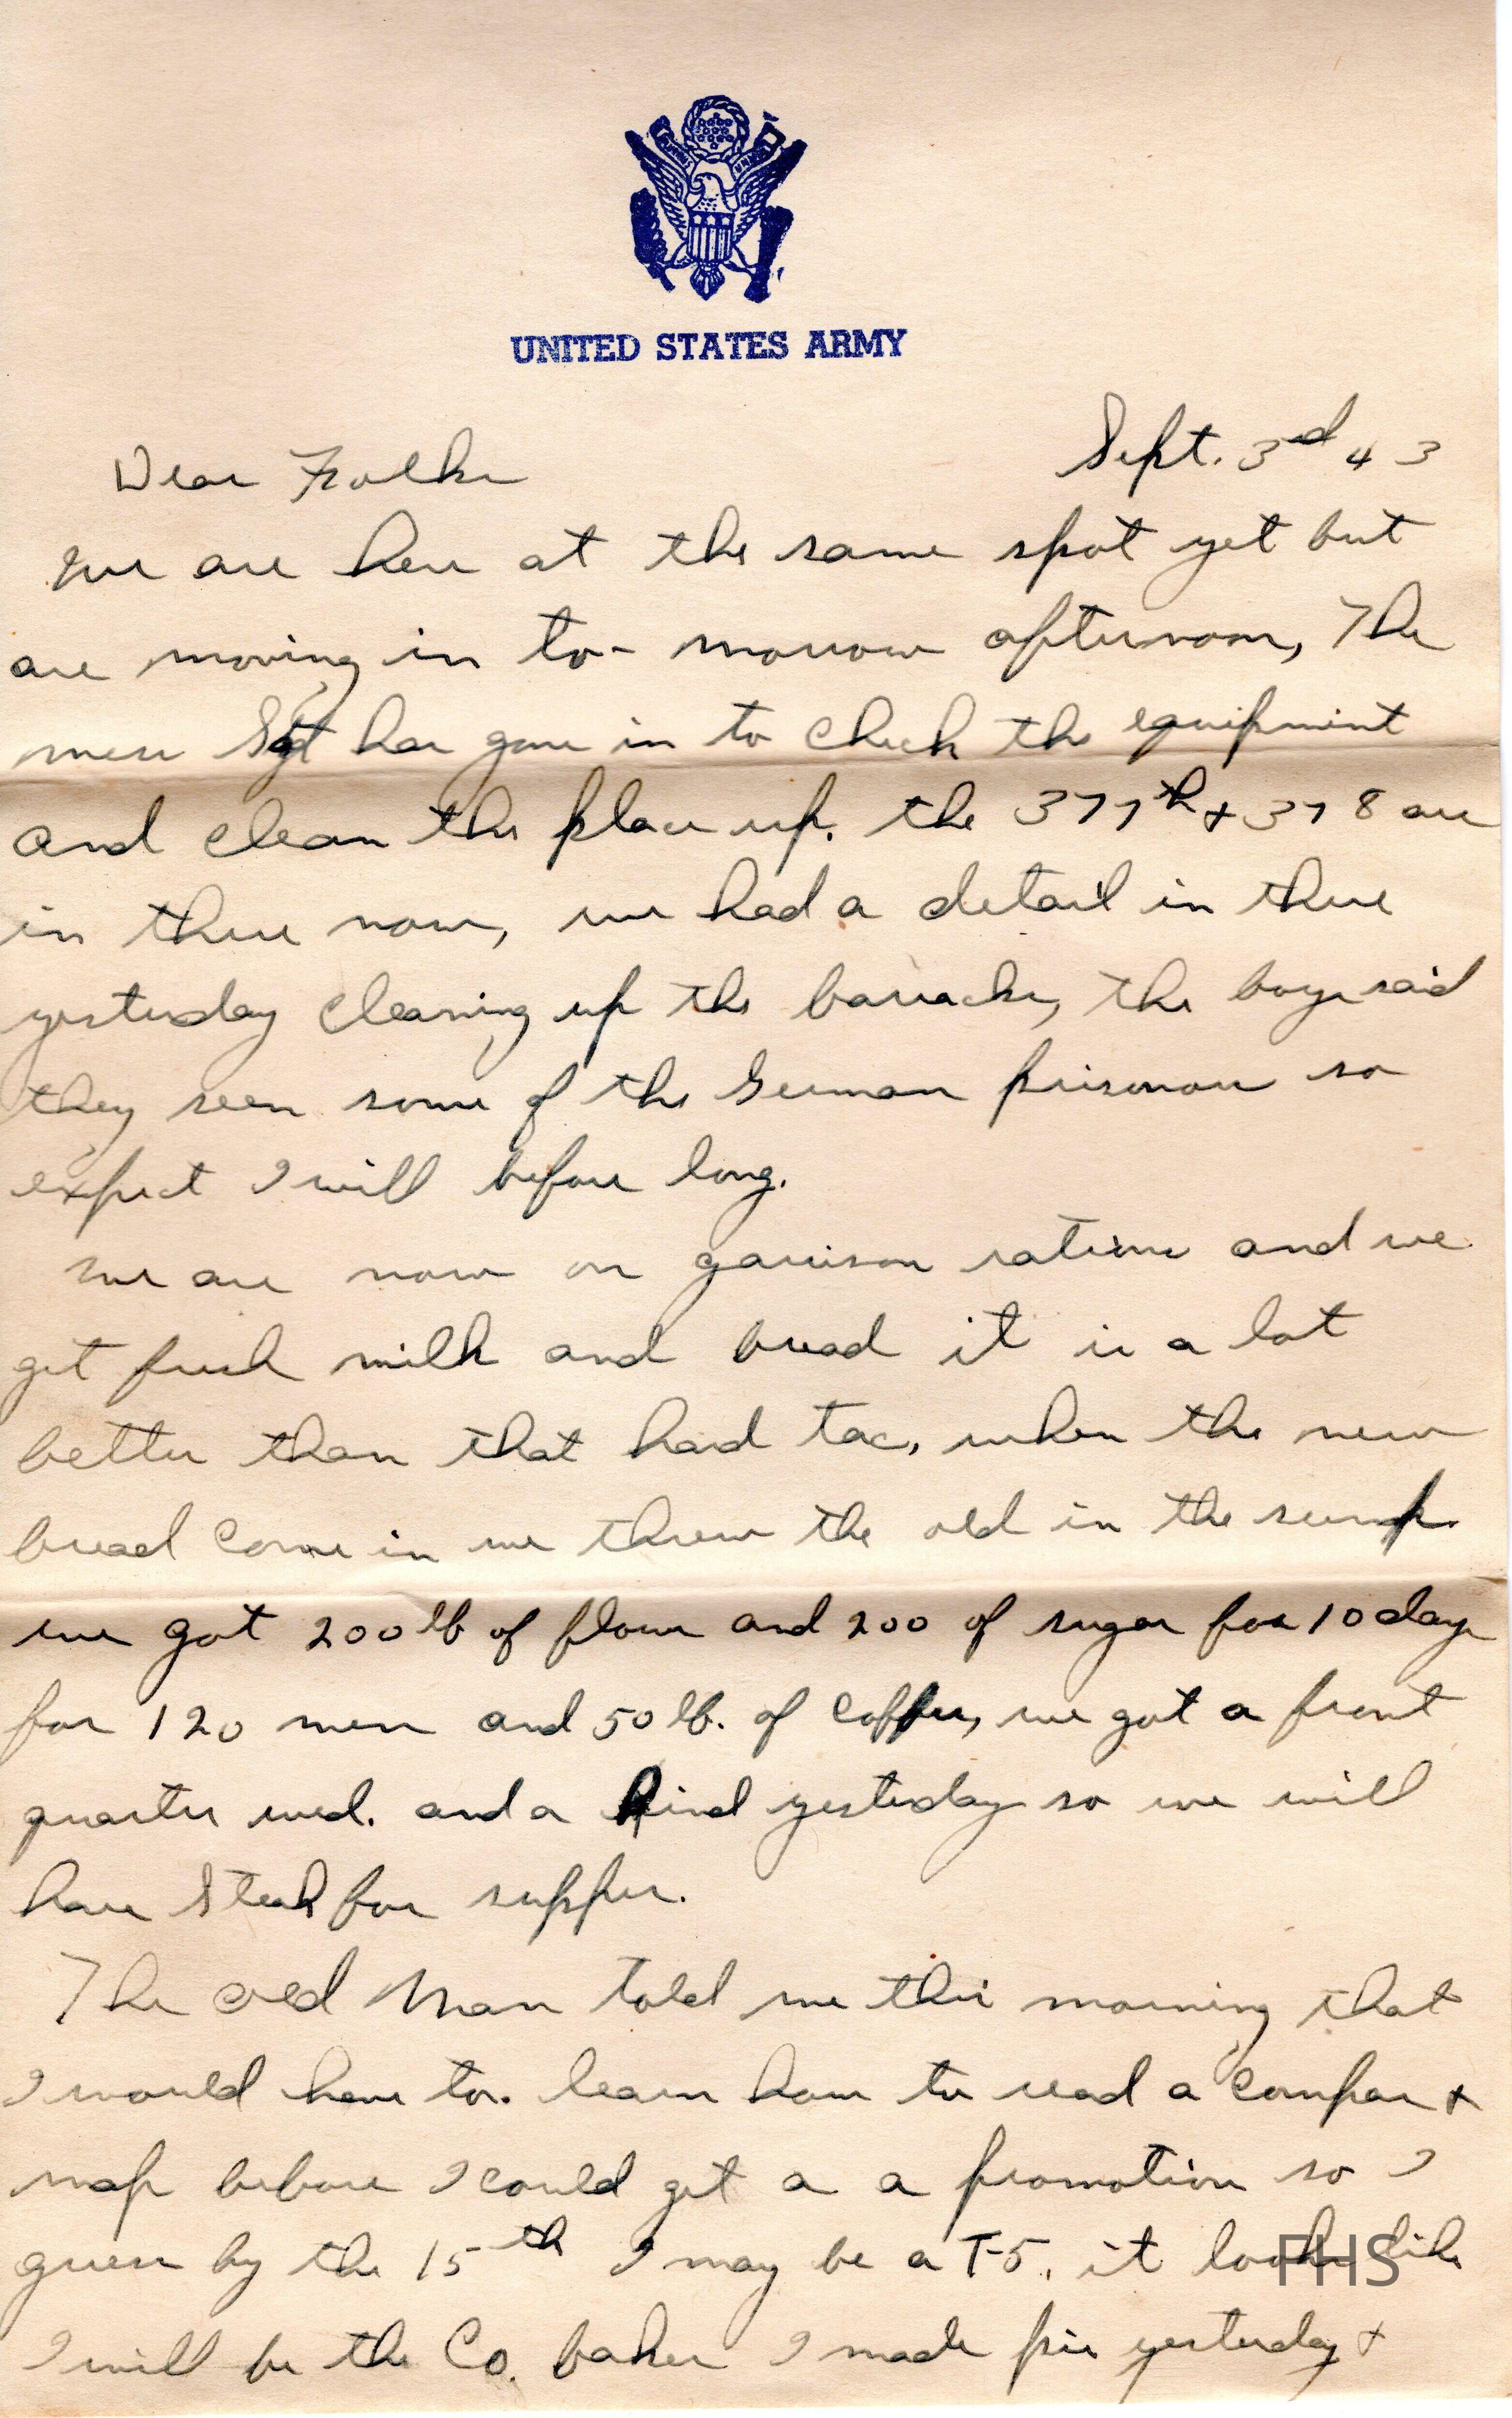 UNITED STATES ARMY
Sept. 3rd 43
Dear Folks
We are here at the same spot yet but
are moving in to-morrow afternoon, The
mess Sgt has gone in to check the equipment
and clean the place up. the 377th + 378 are
in there now, we had a detail in there
yesterday cleaning up the barracks, the boys said
they seen some of the German prisoners so
expect I will before long.
We are now on garrison rations and we
get fresh milk and bread it is a lot
better than that hard tac, when the new
bread come in we threw the old in the sump.
we got 200 lb of flour and 200 of sugar for 10 days
for 120 men and 50 lb. of coffee, we got a front
quarter wed. and a hind yesterday so we will
have Steak for supper.
The old Man told me this morning that
I would have to. learn how to read a compass +
map before I could get a a promotion so I
guess by the 15th I may be a T-5. it looks like
I will be the Co. baker I made pie yesterday +
FHS